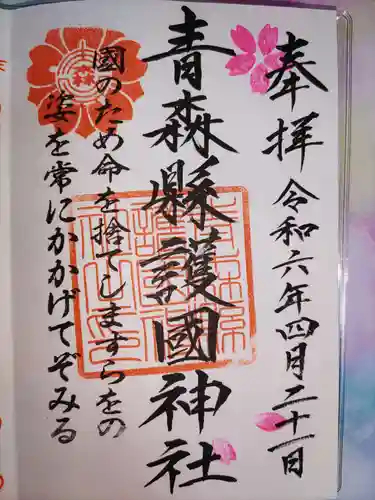 奉拝 令和六年四月二十一日
青森縣護國神社
國のため命を捨てしますらをの
姿を常にかかげてぞみる